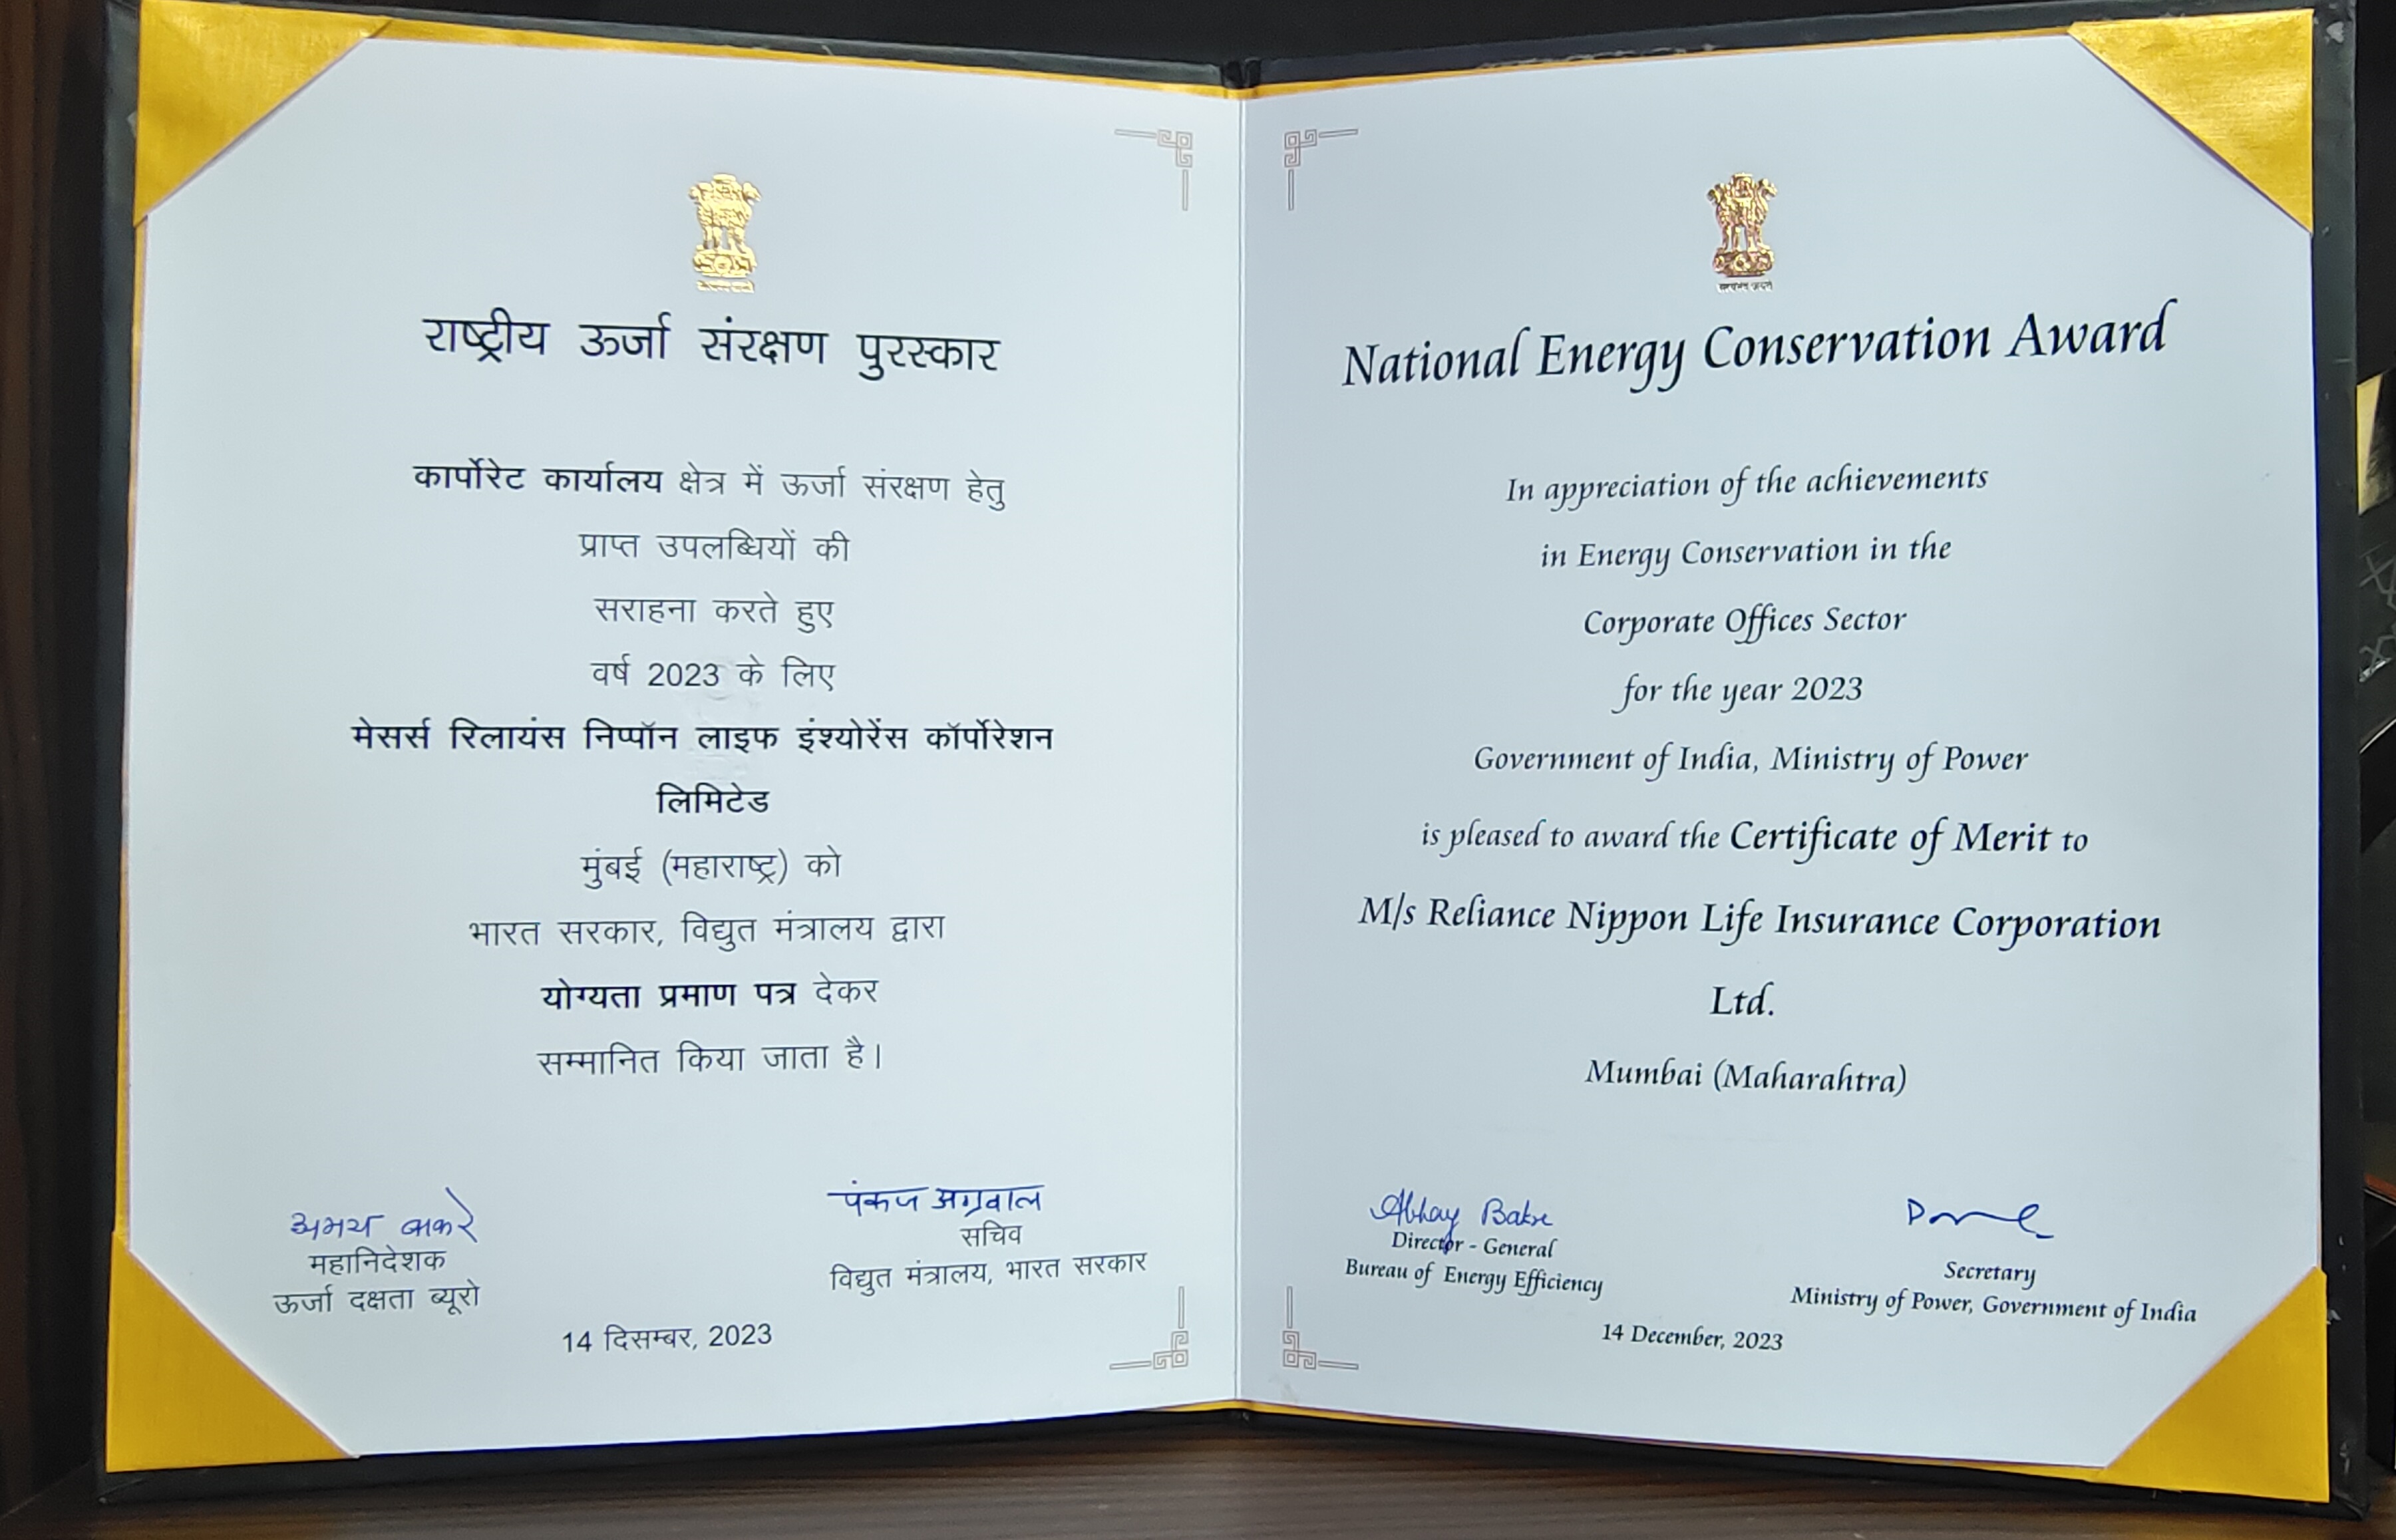 राष्ट्रीय ऊर्जा संरक्षण पुरस्कार
कार्पोरेट कार्यालय क्षेत्र में ऊर्जा संरक्षण हेतु
प्राप्त उपलब्धियों की
सराहना करते हुए
वर्ष 2023 के लिए
मेसर्स रिलायंस निप्पॉन लाइफ इंश्योरेंस कॉर्पोरेशन
लिमिटेड
मुंबई (महाराष्ट्र) को
भारत सरकार, विद्युत मंत्रालय द्वारा
योग्यता प्रमाण पत्र देकर
सम्मानित किया जाता है।
अभय बाकरे
महानिदेशक
ऊर्जा दक्षता ब्यूरो
पंकज अग्रवाल
सचिव
विद्युत मंत्रालय, भारत सरकार
14 दिसम्बर, 2023
सत्यमेव जयते
National Energy Conservation Award
In appreciation of the achievements
in Energy Conservation in the
Corporate Offices Sector
for the year 2023
Government of India, Ministry of Power
is pleased to award the Certificate of Merit to
M/s Reliance Nippon Life Insurance Corporation
Ltd.
Mumbai (Maharahtra)
Abhay Bakre
Director - General
Bureau of Energy Efficiency
Secretary
Ministry of Power, Government of India
14 December, 2023